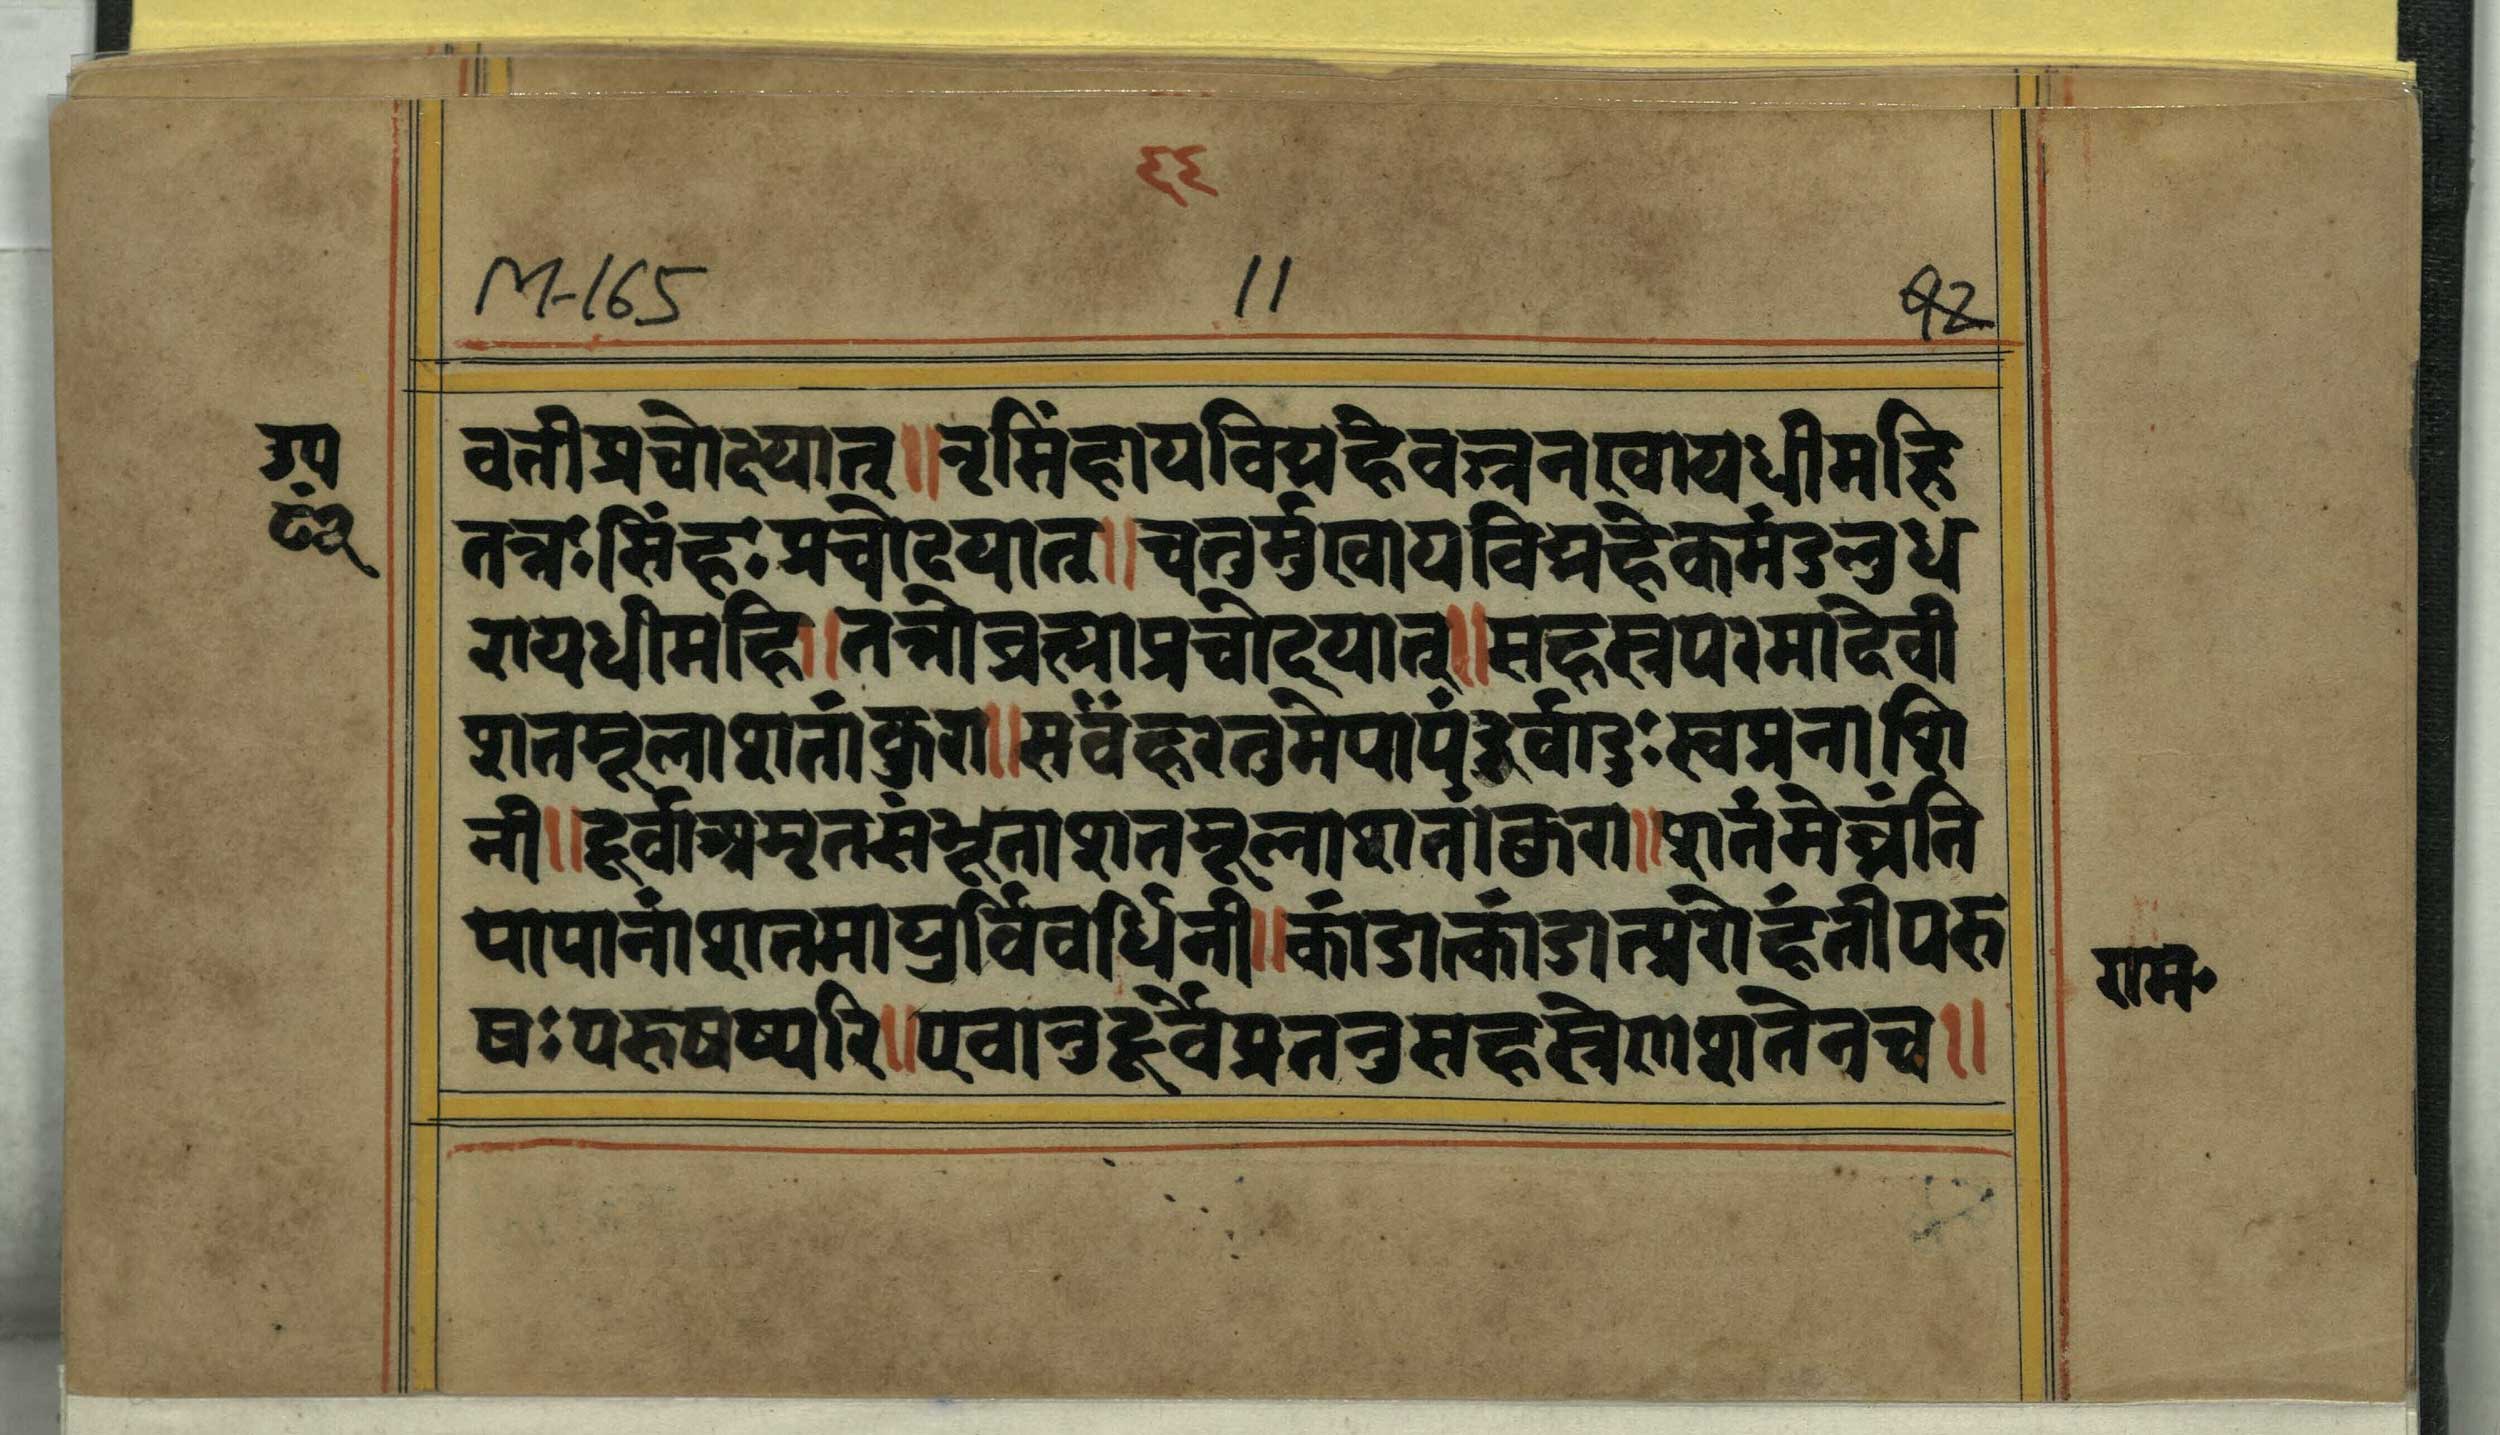 ६६
M-165 11 12
उप
वतीप्रचोदयात्॥नृसिंहायविद्महेवज्रनखायधीमहि
तन्नःसिंहःप्रचोदयात्॥चतुर्मुखायविद्महेकमंडलुध
रायधीमहि॥तन्नोब्रह्माप्रचोदयात्॥सहस्रपरमादेवी
शतमूलाशतांकुरा॥सर्वंहरतुमेपापंदुर्वादुःस्वप्ननाशि
नी॥दूर्वाअमृतसंभूताशतमूलाशतांकुरा॥शतंमेघ्नंति
पापानांशतमायुर्विवर्धिनी॥कांडात्कांडात्प्ररोहंतीपरु
षःपरुषष्परि॥एवानुदूर्वेप्रतनुसहस्रेणशतेनच॥
राम॰